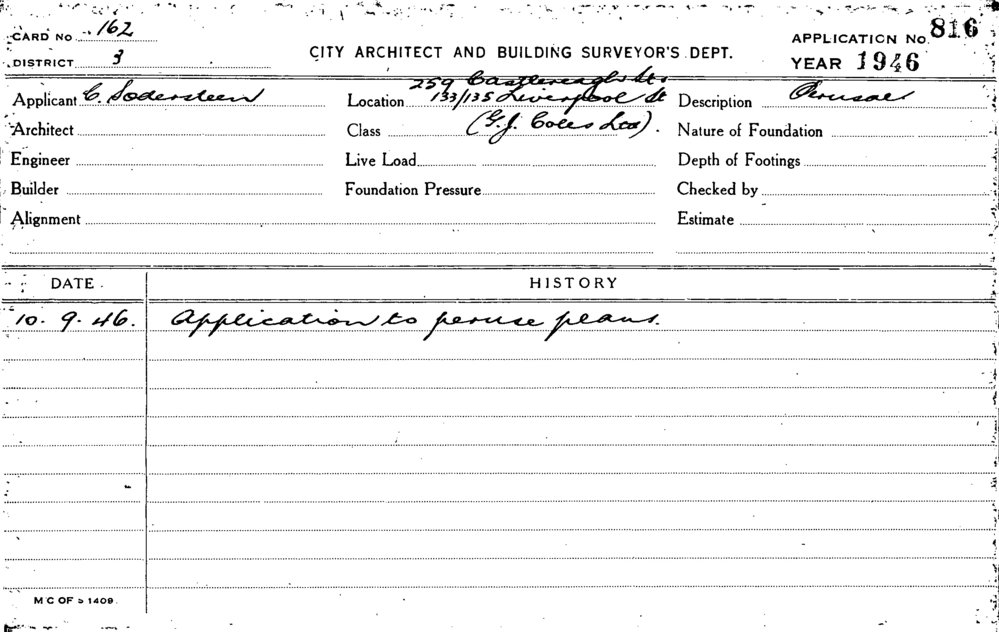 CARD No 162
DISTRICT 3
CITY ARCHITECT AND BUILDING SURVEYOR'S DEPT.
APPLICATION No. 816
YEAR 1946
Applicant C. Sodersteen
Location 259 Castlereagh St.
133/135 Liverpool St
Description Perusal
Architect
Class (G. J. Coles Ltd).
Nature of Foundation
Engineer
Live Load
Depth of Footings
Builder
Foundation Pressure
Checked by
Alignment
Estimate
DATE
HISTORY
10. 9. 46. Application to peruse plans.
M C OF S 1409